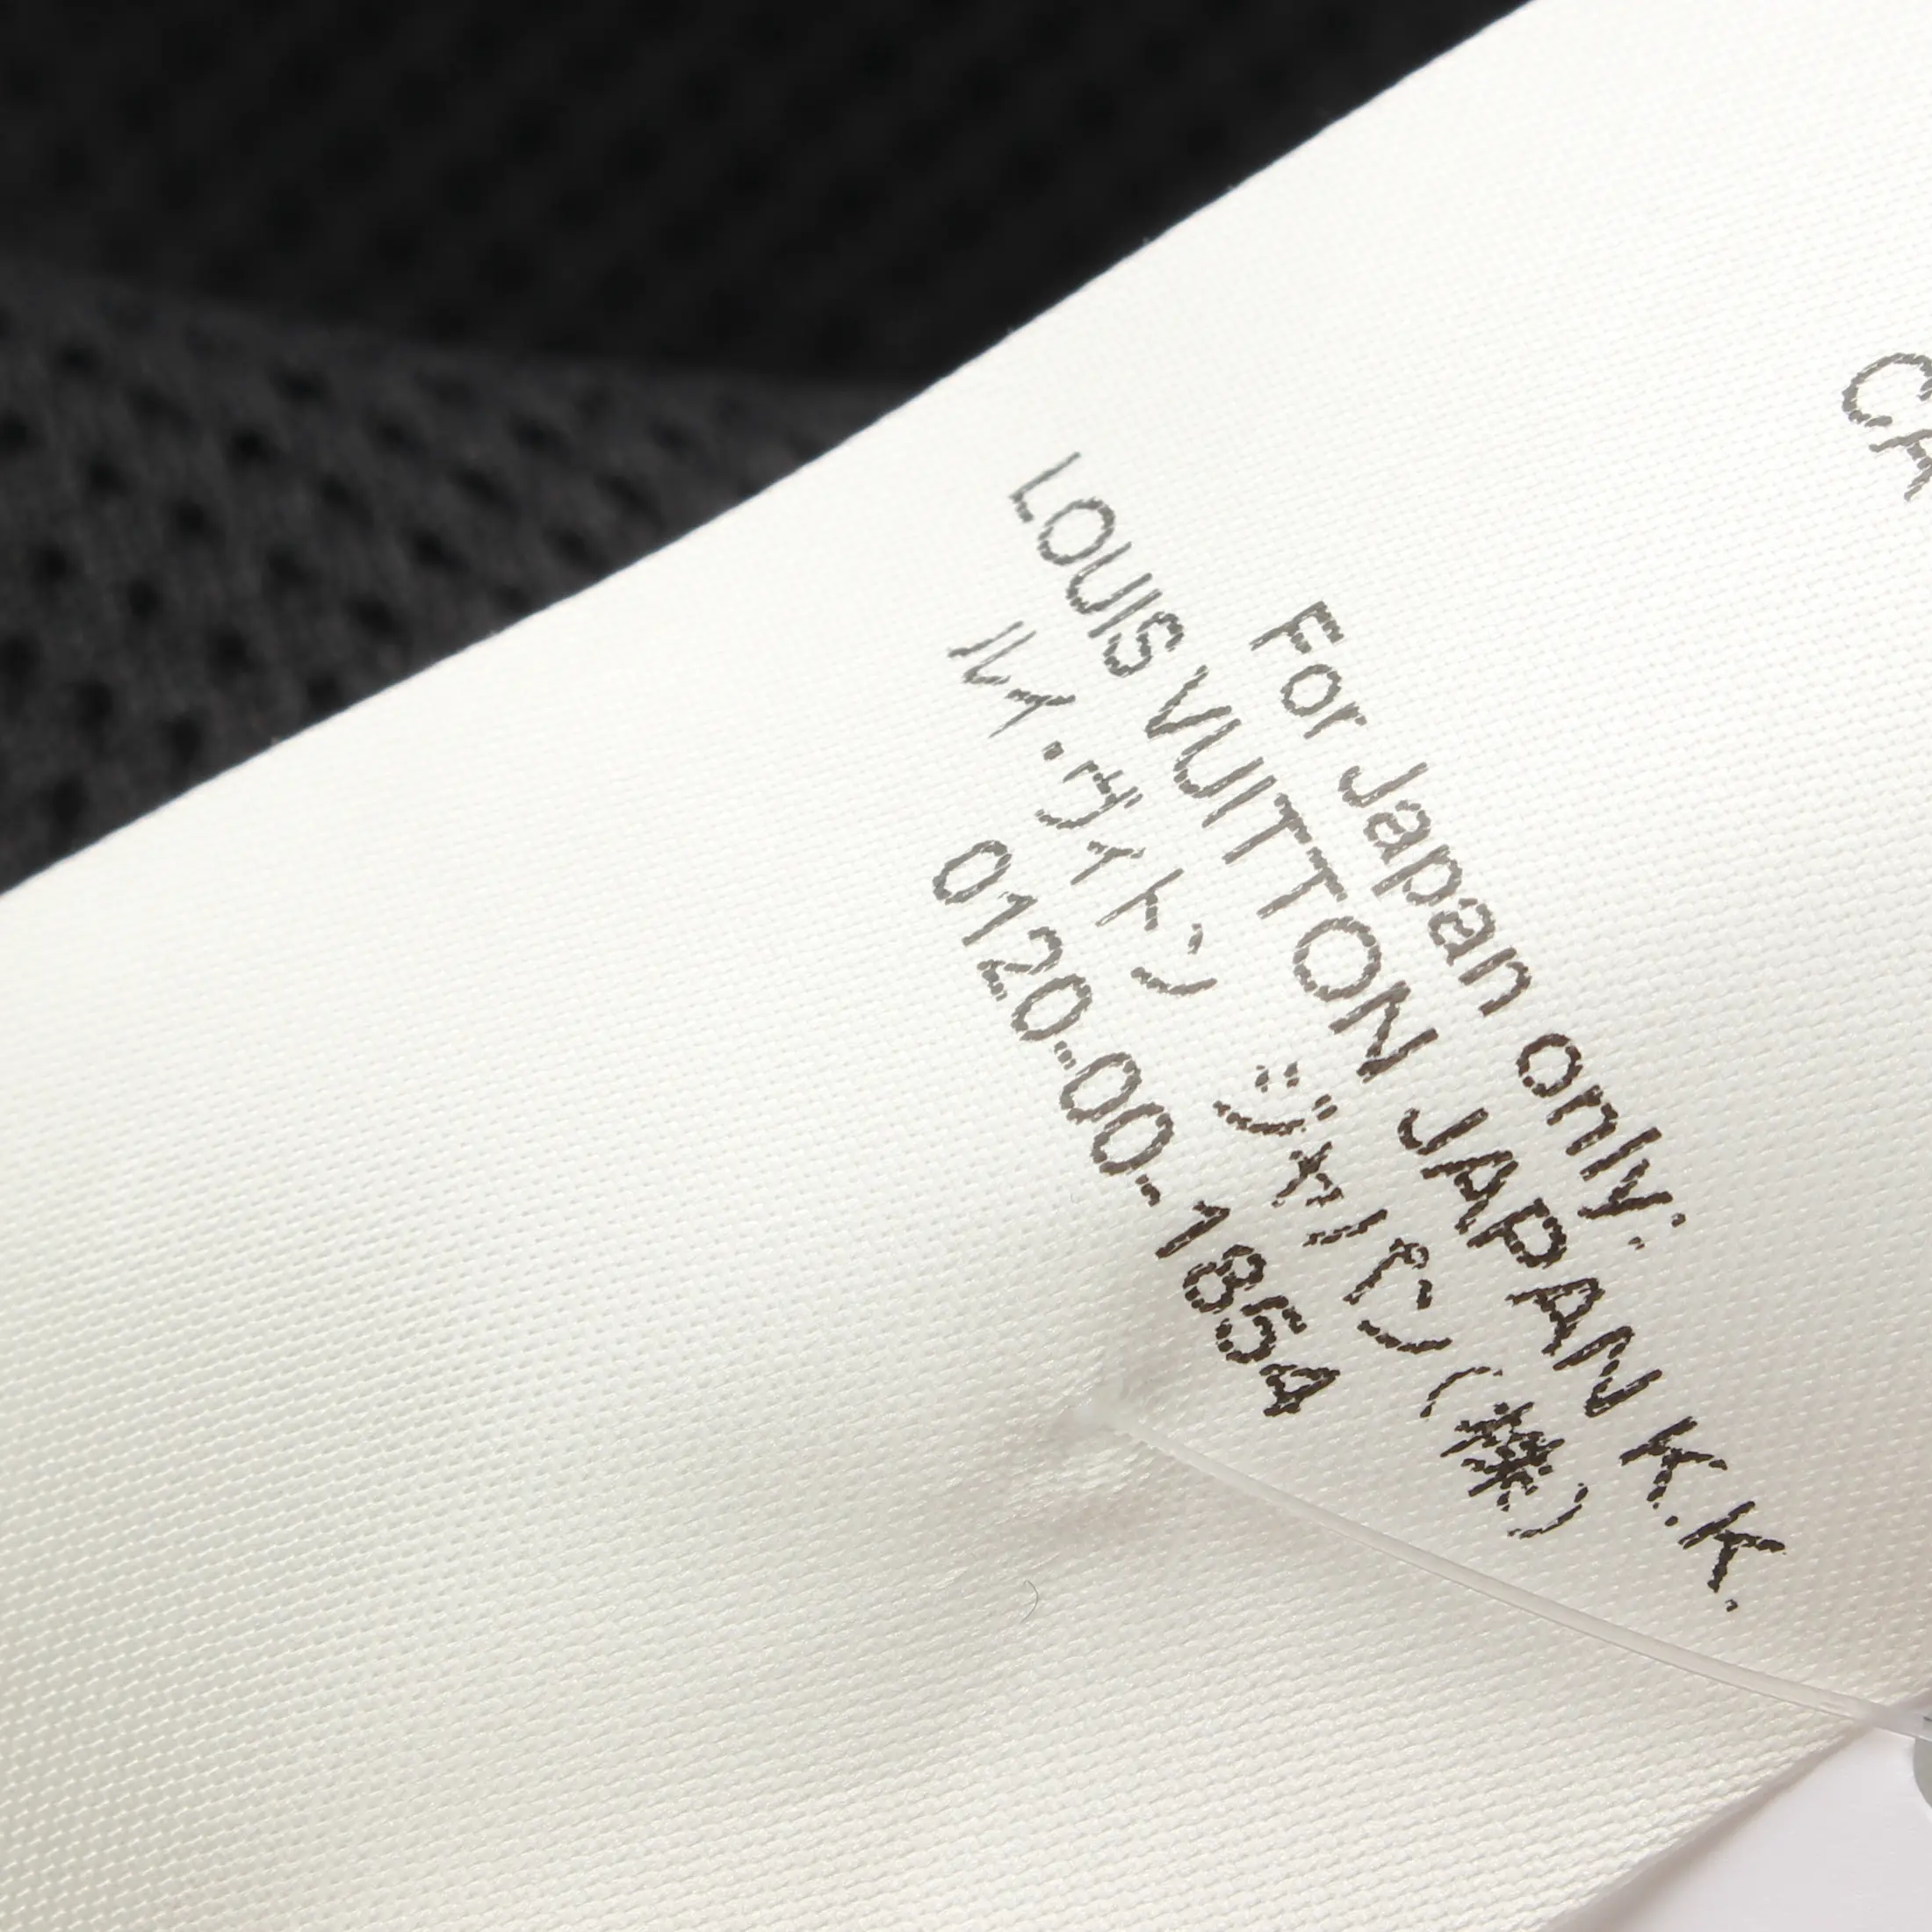 CA
For Japan only:
LOUIS VUITTON JAPAN K.K.
ルイ・ヴィトン ジャパン(株)
0120-00-1854